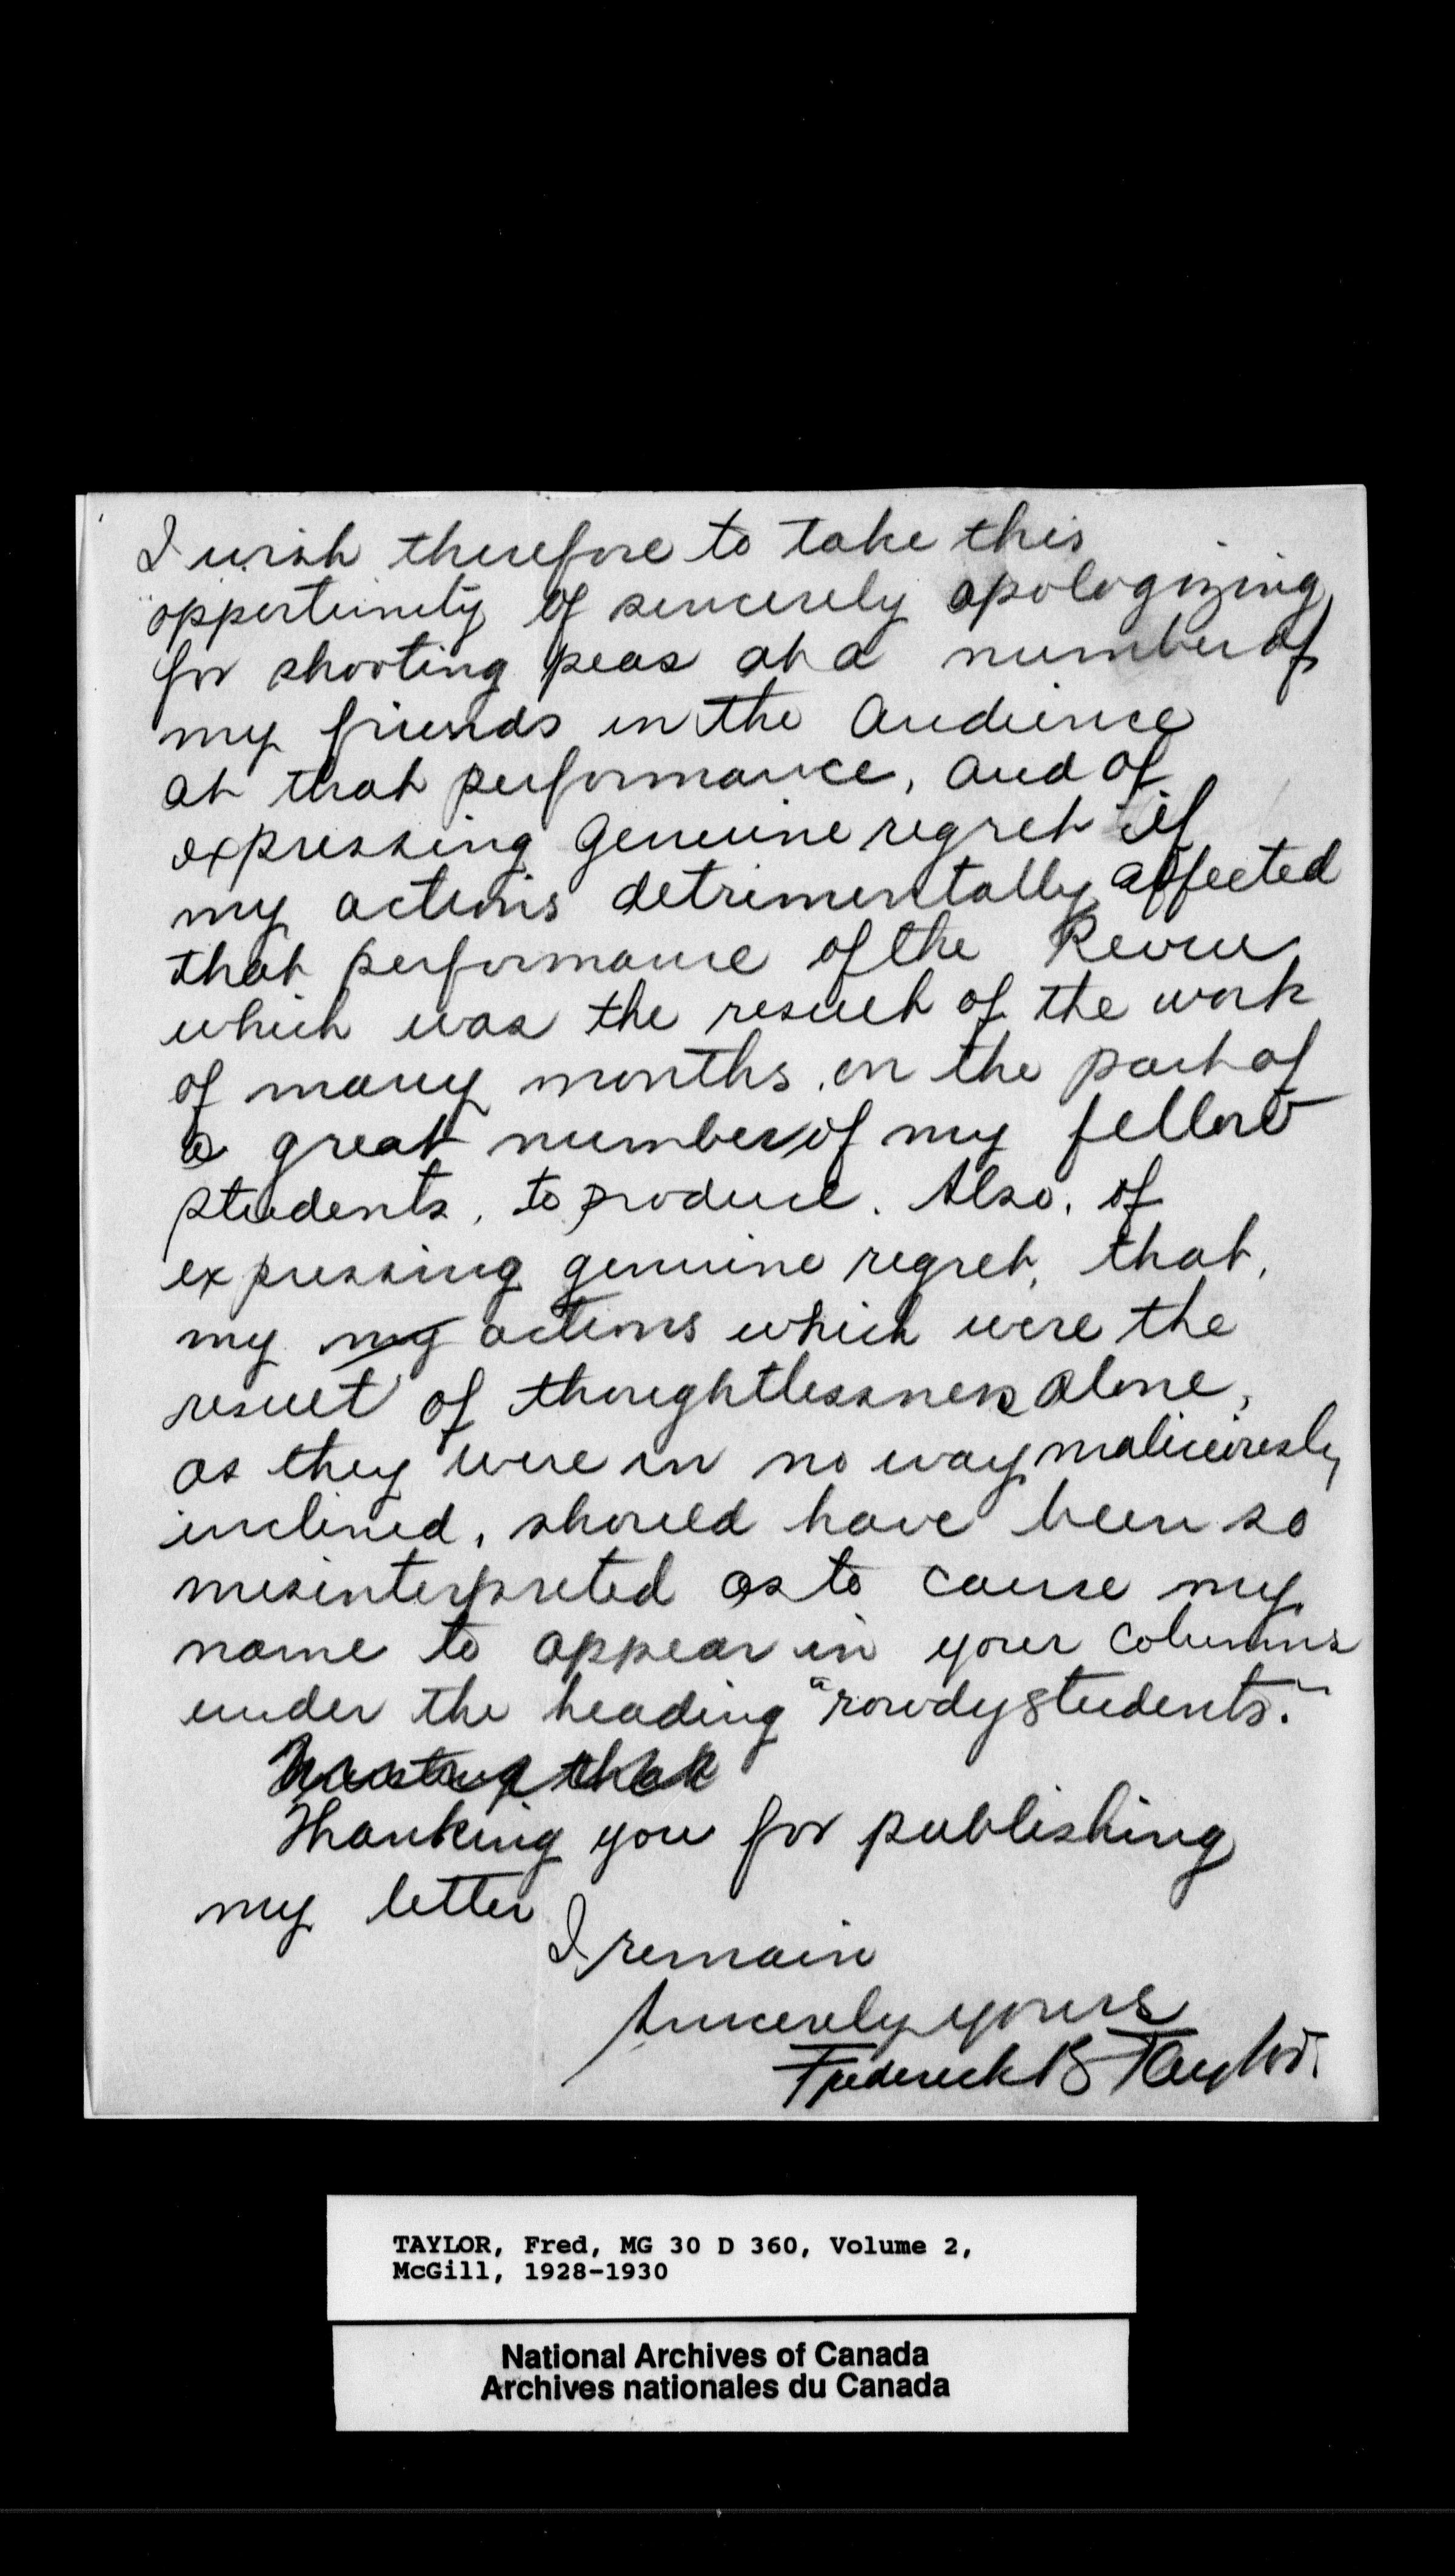 I wish therefore to take this
opportunity of sincerely apologizing
for shooting peas at a number of
my friends in the Audience
at that performance, and of
expressing Genuine regret if
my actions detrimentally affected
that performance of the Revue
which was the result of the work
of many months, on the part of
a great number of my fellow
students, to produce. Also, of
expressing genuine regret, that,
my my actions which were the
result of thoughtlessness alone,
as they were in no way maliciously
inclined, should have been so
misinterpreted as to cause my
name to appear in your columns
under the heading "rowdy students."
Trusting that
Thanking you for publishing
my letter
I remain
Sincerely yours
Frederick B Taylor.
TAYLOR, Fred, MG 30 D 360, Volume 2,
McGill, 1928-1930
National Archives of Canada
Archives nationales du Canada